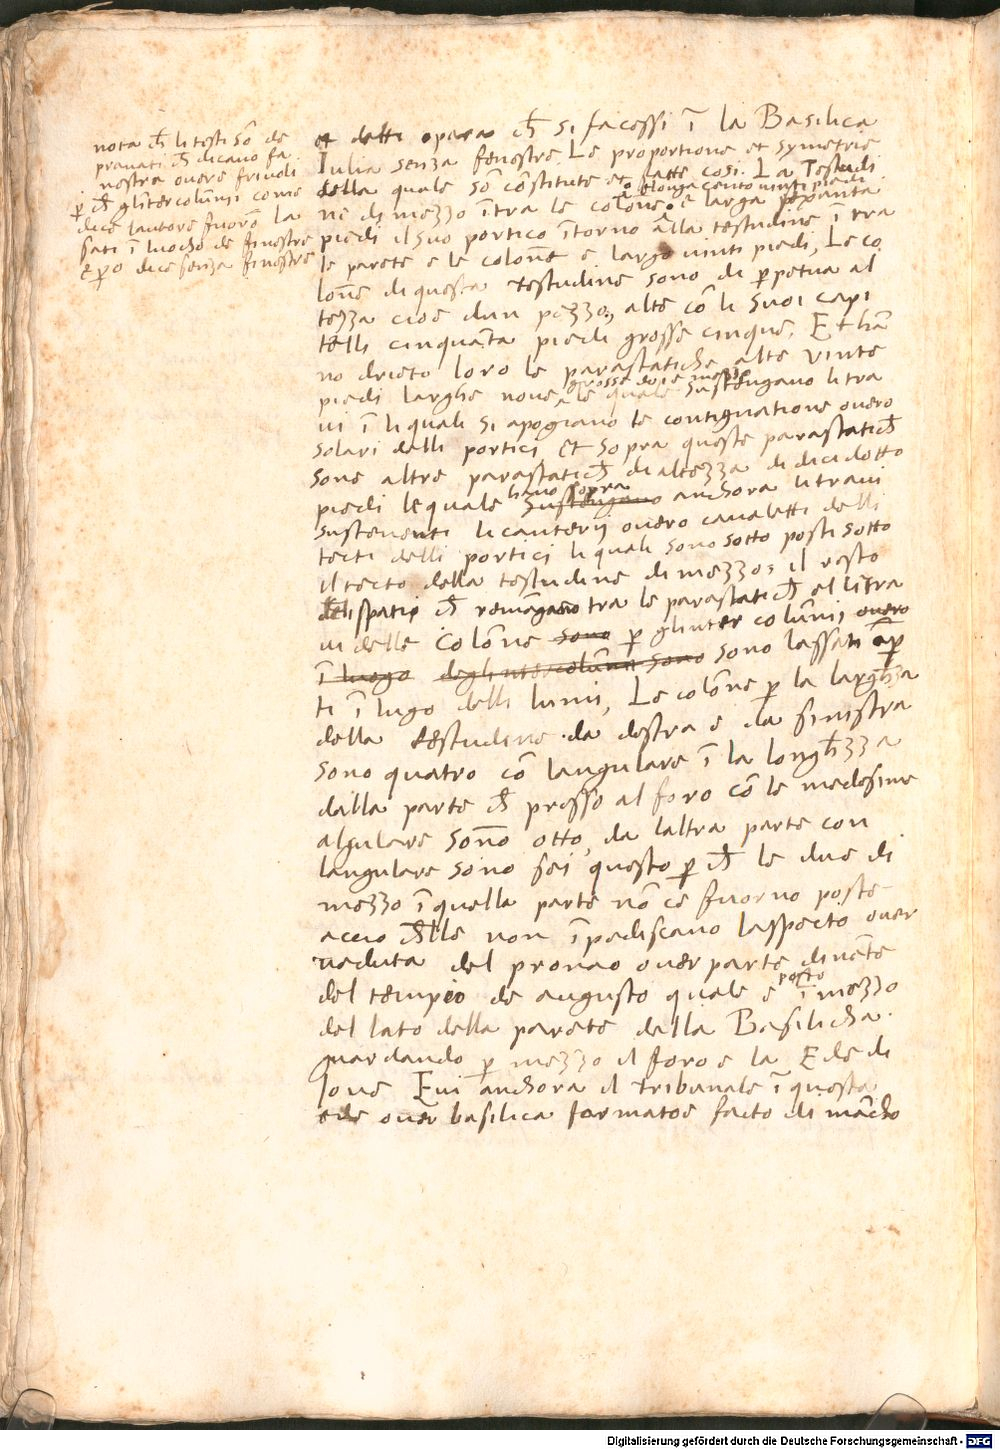 nota ch̄ li testi sō de
prauati ch̄ dicano fa
nestra overe friuoli
p̱ ch̄ glintercolūnii come
dice lautore fuorō la
sati ī luocho de finestre
e p̱o dice senza finestre
et detti opera ch̄ si facessi ī la Basilica
Iulia senza fenestre Le proportione et symetrie
della quale sō cōnstitute et fatte cosi. La Testudi
e longa cento vinti piedi
ne di mezzo ītra le colōne e larga sexānta
piedi il suo portico ītorno alla testudine ī tra
le parete e le colonē e largo vinti piedi, Le co
lonē di questa testudine sono di p̱petua al
tezza cioe dun pezzo, alte cō li suoi capi
telli cinquanta piedi grosse cinque. Et hā
no drieto loro le parastatiche alte vinte
grosse doi e mezzo
piedi larghe nove le quale sustengano li tra
vi ī li quali si apogiano le contignatione overo
solari delli portici et sopra queste parastatich̄
sono altre parastatich̄ di altezza di dicidotto
hano sopra
piedi le quale sustengano anchora li travi
sustenenti li canterij overo cavaletti delli
tecti delli portici li quali sono sotto posti sotto
il tecto della testudine di mezzo, il resto
delspatio ch̄ remāgano tra le parastatich̄ et li tra
vi delle Colōne sono p̱ glinter colūnii overo
ī luogo deglintercolūnii sono sono lassati ap̱
ti ī lugo delli lumi, Le colōne p̱ la largh̄za
della testudine da destra e da sinistra
sono quatro cō langulare ī la longh̄zza
dalla parte ch̄ presso al foro cō le medesime
algulare sonō otto, da laltra parte con
langulare sono sei questo p̱ ch̄ le due di
mezzo ī quella parte nō ce fuorno poste
accio ch̄lle non īpediscano laspecto over
veduta del pronao over parte dināte
posto
del tempio de augusto quale e ī mezzo
del lato della parete della Basilicha.
guardando p̱ mezzo il foro e la Ede di
Iove Evi anchora il tribunale ī questa
ede over basilica formatoe facto di mācho
Digitalisierung gefördert durch die Deutsche Forschungsgemeinschaft - DFG